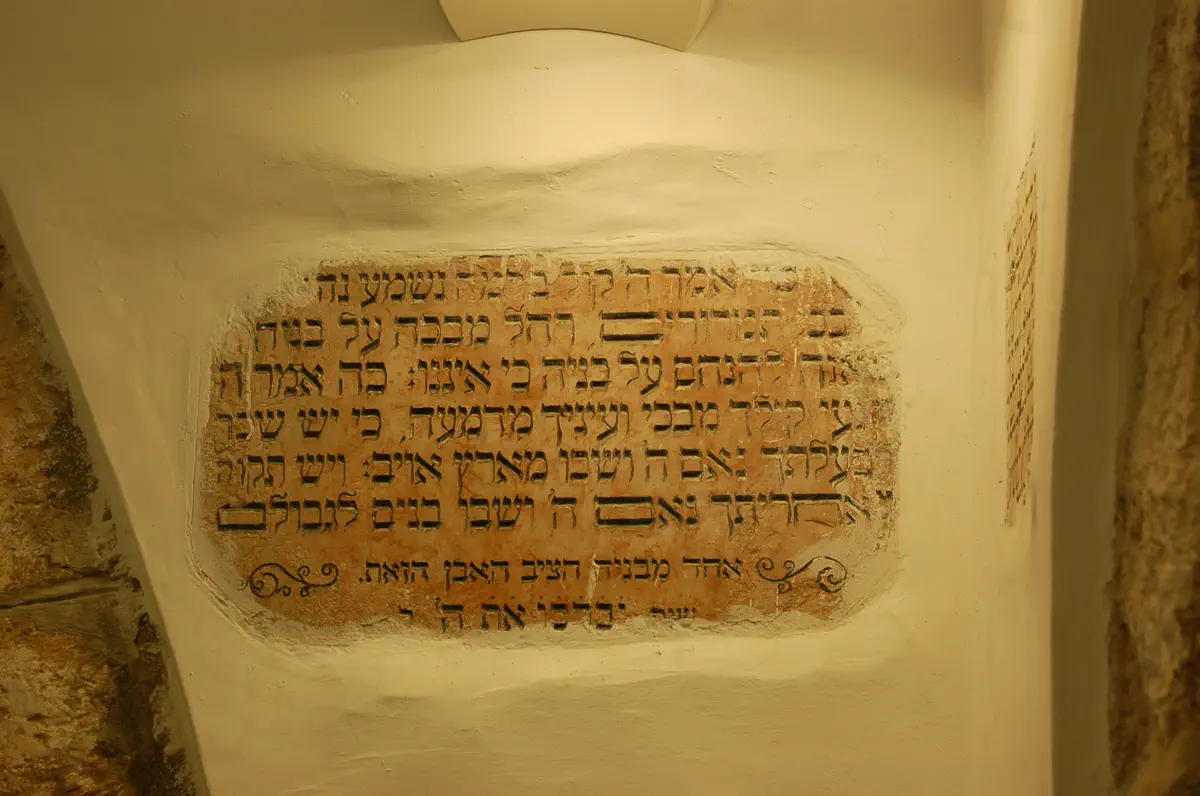 אמר ה' קול ברמה נשמע נהי
תמרורים רחל מבכה על בניה
להנחם על בניה כי איננו: כה אמר ה
קולך מבכי ועיניך מדמעה, כי יש שכר
לפעלתך נאם ה' ושבו מארץ אויב: ויש תקוה
לאחריתך נאם ה' ושבו בנים לגבולם
אחד מבניה הציב האבן הזאת.
את ה'